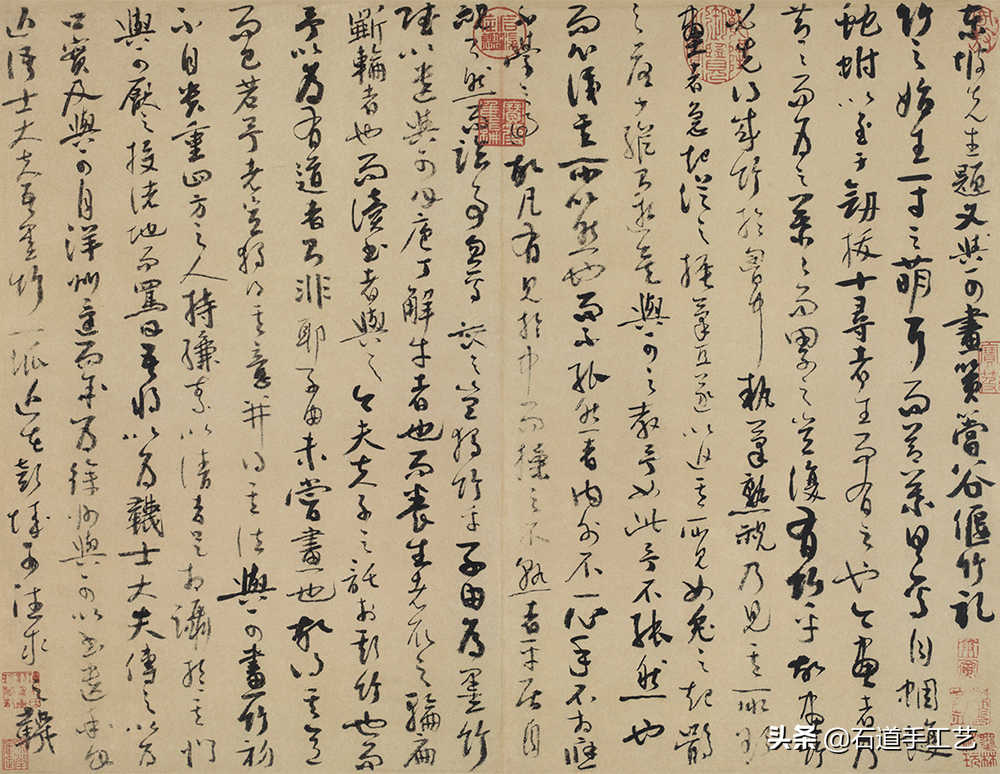 東坡先生題文與可畫篔簹谷偃竹記
竹之始生一寸之萌耳而節葉具焉自蜩復
蛇蚹以至于劍拔十尋者生而有之也今畫者乃
節節而為之葉葉而累之豈復有竹乎故畫竹
必先得成竹於胸中執筆熟視乃見其所欲
畫者急起從之振筆直遂以追其所見如兔之起鶻
之落少縱則逝矣與可之教予如此予不能然也
而心識其所以然也而不能然者內外不一心手不相應
不學之過故凡有見於中而操之不熟者平居自
視了然而臨事忽焉喪之豈獨竹乎子由為墨竹
賦以遺與可曰庖丁解牛者也而養生者取之輪扁
斲輪者也而讀書者與之今夫夫子之託於斯竹也而
予以為有道者則非耶子由未嘗畫也故得其意
而已若予者豈獨得其意并得其法與可畫竹初
不自貴重四方之人持縑素以請者足相躡於其門
與可厭之投諸地而罵曰吾將以為韈士大夫傳之以為
口實及與可自洋州還而余為徐州與可以書遺余曰
近語士大夫吾墨竹一派近在彭城可往求之韈
头条 @石道手工艺